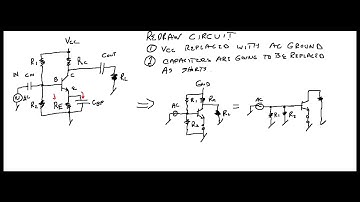 REDRAW CIRCUIT
① VCC REPLACED WITH AC GROUND
② CAPACITORS ARE GOING TO BE REPLACED
AS SHORTS
VCC
R1
RC
COUT
C
IN
CIN
B
E
RL
AC
R2
RE
CBP
GND
AC
R1
RC
R2
RL
AC
R1
R2